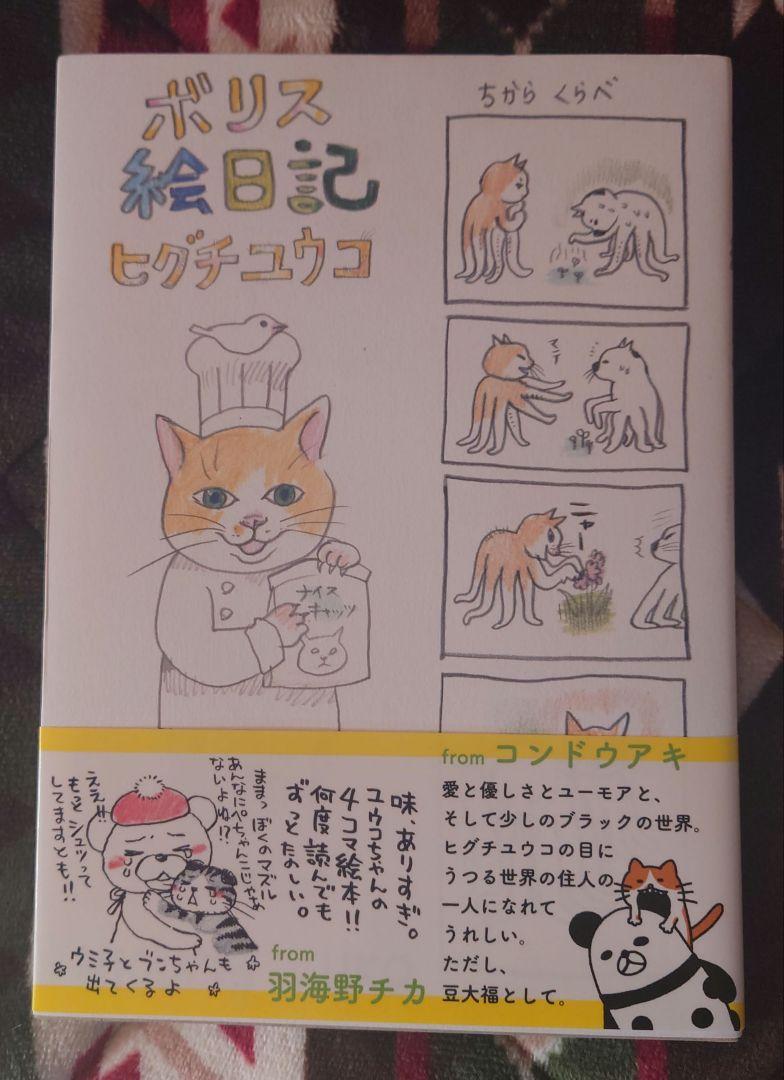 ボリス
絵日記
ヒグチユウコ
ちから くらべ
マテ
ニャー
ナイス
キャッツ
ままっ ぼくのマズル
あんなにぺちゃんこじゃ
ないよね!?
ええ!!
もっとシュッって
してますとも!!
ウミ子とブンちゃんも
出てくるよ
味、ありすぎ。
ユウコちゃんの
4コマ絵本!!
何度読んでも
ずっとたのしい。
from
羽海野チカ
from コンドウアキ
愛と優しさとユーモアと、
そして少しのブラックの世界。
ヒグチユウコの目に
うつる世界の住人の
一人になれて
うれしい。
ただし、
豆大福として。